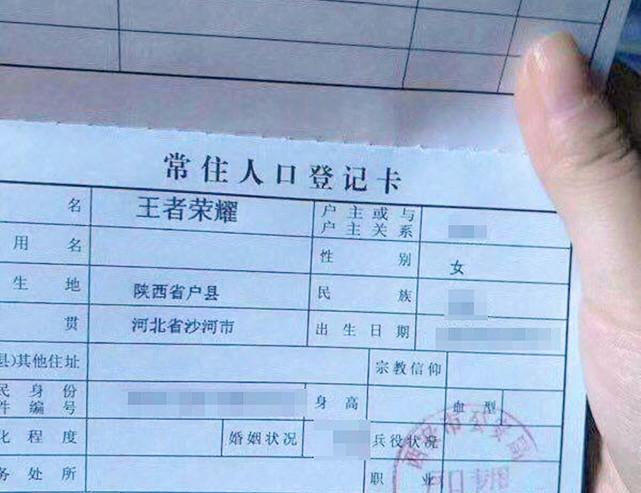 常住人口登记卡
名 王者荣耀 户主或与
户主关系
用名 性别 女
生地 陕西省户县 民族
贯 河北省沙河市 出生日期
县)其他住址 宗教信仰
民身份
件编号 身高 血型
化程度 婚姻状况 兵役状况
务处所 职业
西安市公安局
户口专用